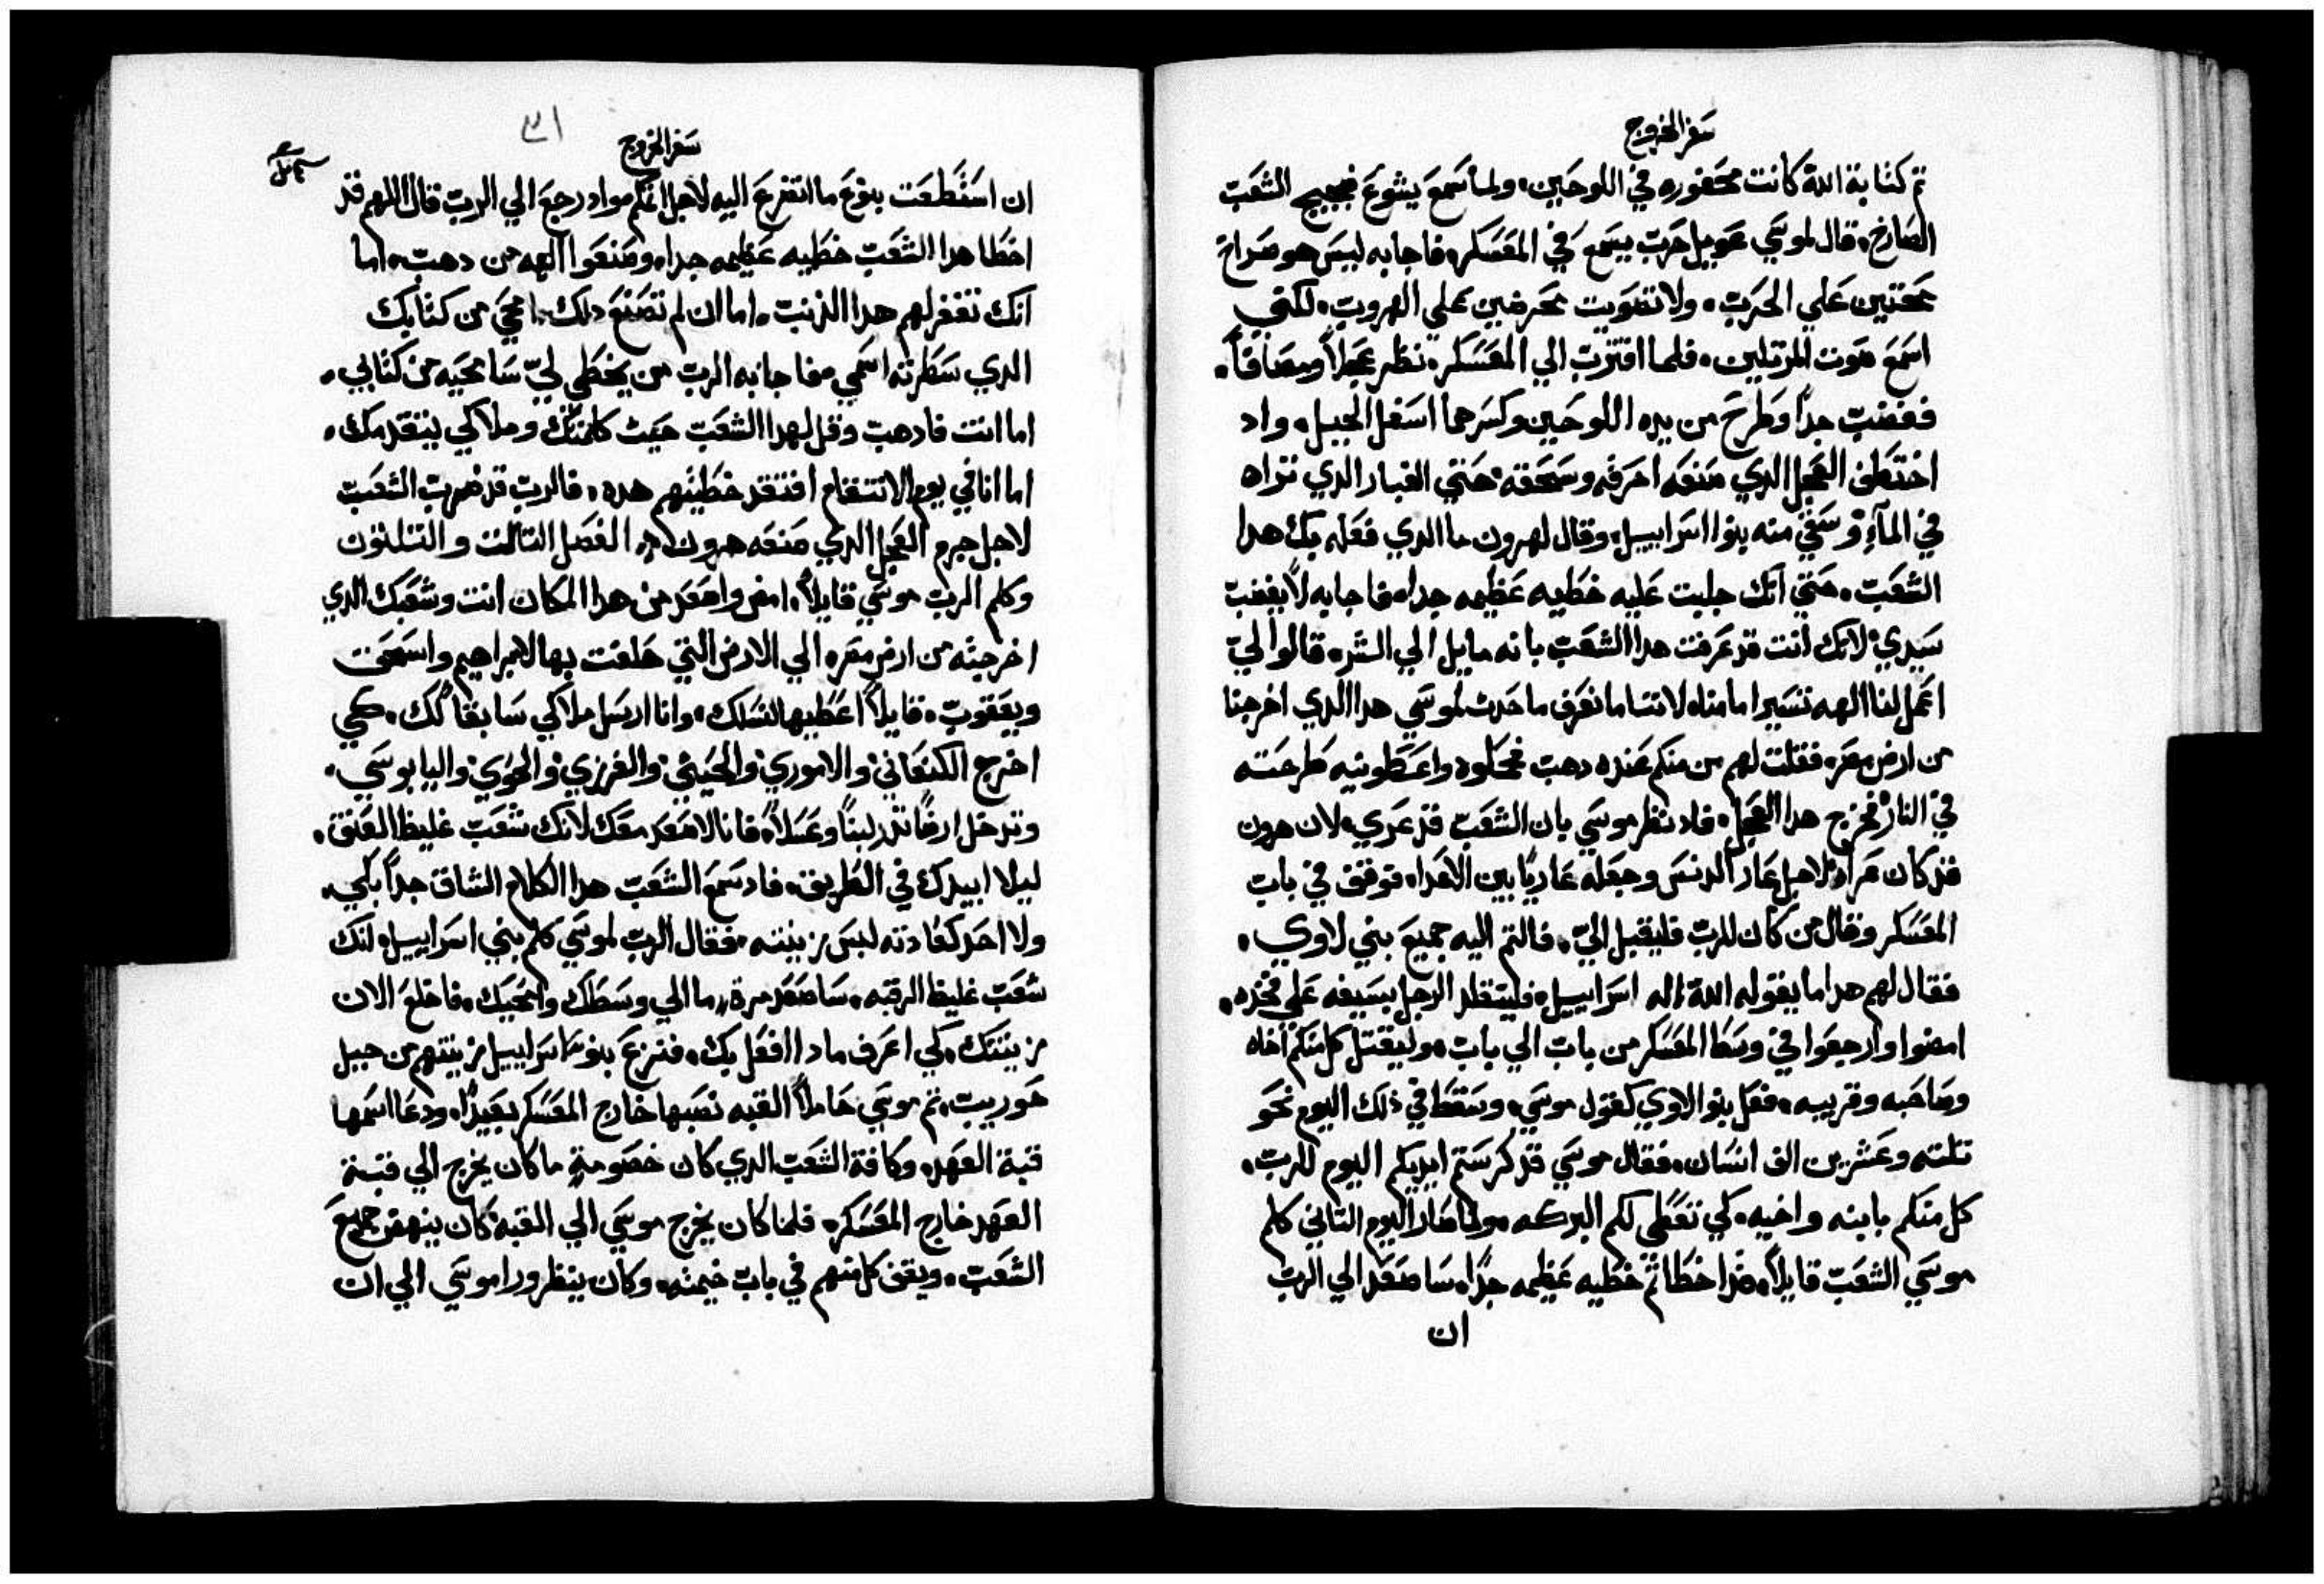 سفر الخروج
تم كتابة الله كانت محفوره في اللوحين، ولما سمع يشوع ضجيج الشعب
الصارخ، قال لموسي عويل حرب يسمع في المعسكر، فاجابه ليس هو صراخ
محتتين علي الحرب، ولا تصويت محرضين علي الهروب، لكني
اسمع صوت المرتلين، فلما اقترب الي المعسكر، نظر عجلاً وصافاً،
فغضب جداً وطرح من يده اللوحين وكسرهما اسفل الجبل، واد
اختطف العجل الدي صنعه احرقه وسحقه حتي الغبار الدي تراه
في المآء وسقي منه بنوا اسراييل، وقال لهرون ما الدي فعله بك هدا
الشعب، حتي انك جلبت عليه خطيه عظيمه جدا، فاجابه لا يغضب
سيدي، لانك انت قد عرفت هدا الشعب بانه مايل الي الشر، قالوا ليّ
اعمل لنا الهه تسير امامنا، لاننا ما نعرف ما حدث لموسي هدا الدي اخرجنا
من ارض مصر، فقلت لهم من منكم عنده دهب فمحلوه واعطونيه طرحته
في النار فخرج هدا العجل، فاد نظر موسي بان الشعب قد عري، لان هرون
قد كان عراه لاجل عار الدنس وجعله عارياً بين الاعدا، فوقف في باب
المعسكر وقال من كان للرب فليقبل اليّ، فالتم اليه جميع بني لاوي،
فقال لهم هدا ما يقوله الله اله اسراييل، فليتقلد الرجل بسيفه علي فخده،
امضوا وارجعوا في وسط المعسكر من باب الي باب، وليقتل كل منكم اخاه
وصاحبه وقريبه، ففعل بنوا لاوي كقول موسي، وسقط في ذلك اليوم نحو
تلته وعشرين الف انسان، فقال موسي قد كرستم ايديكم اليوم للرب،
كل منكم بابنه واخيه، لكي تعطي لكم البركه، ولما صار اليوم التاني كلم
موسي الشعب قايلاً، قد اخطاتم خطيه عظيمه جداً، ساصعد الي الرب
ان
سفر الخروج
٣١
ان استطعت بنوع ما اتضرع اليه لاجل اتمكم، واد رجع الي الرب قال اللهم قد
اخطا هدا الشعب خطيه عظيمه جدا، وصنعوا الهه من دهب، اما
انك تغفر لهم هدا الدنب، اما ان لم تصنع دلك امحي من كتابك
الدي سطرته اسمي، فاجابه الرب من يخطي ليّ سامحيه من كتابي،
اما انت فادهب وقل لهدا الشعب حيث كلمتك وملاكي يتقدمك،
اما انا في يوم الانتقام افتقد خطيتهم هده، فالرب قد ضرب الشعب
لاجل جرم العجل الدي صنعه هرون الفصل التالت والتلتون
وكلم الرب موسي قايلاً، امض واصعد من هدا المكان انت وشعبك الدي
اخرجته من ارض مصر، الي الارض التي حلفت بها لابراهيم واسحق
ويعقوب، قايلاً اعطيها لنسلك، وانا ارسل ملاكي سابقاً لك، كي
اخرج الكنعاني والاموري والحيتي والفرزي والحوي واليابوسي،
وتدخل ارضاً تدر لبناً وعسلاً، فانا لا اصعد معك لانك شعب غليظ العنق،
ليلا ابيدك في الطريق، فاد سمع الشعب هدا الكلام الشاق جداً بكي،
ولا احد كعادته لبس زينته، فقال الرب لموسي كلم بني اسراييل، انك
شعب غليظ الرقبه، ساصعد مرة ما الي وسطك وامحيك، فاخلع الان
زينتك، لكي اعرف مادا افعل بك، فنزع بنو اسراييل زينتهم من جبل
حوريب، تم موسي حاملاً القبه نصبها خارج المعسكر بعيداً، ودعا اسمها
قبة العهد، وكافة الشعب الدي كان خصومة ما كان يخرج الي قبة
العهد خارج المعسكر، فلما كان يخرج موسي الي القبه كان ينهض جميع
الشعب، ويقف كل منهم في باب خيمته، وكان ينظر ورا موسي الي ان